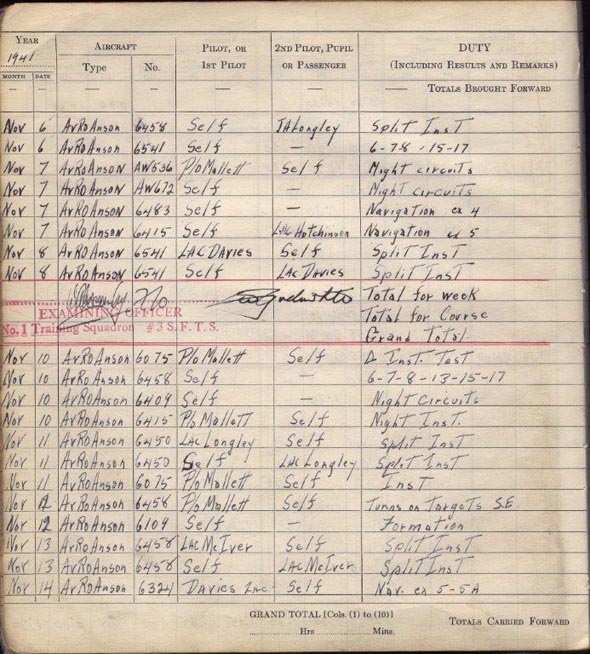 YEAR AIRCRAFT PILOT, OR 2ND PILOT, PUPIL DUTY
1941 Type No. 1ST PILOT OR PASSENGER (INCLUDING RESULTS AND REMARKS)
MONTH DATE
— — — — — — — TOTALS BROUGHT FORWARD
Nov 6 AvRoAnson 6458 Self JALongley Split Inst
Nov 6 AvRoAnson 6541 Self — 6-78-15-17
Nov 7 AvRoAnson AW536 P/o Mallett Self Night circuits
Nov 7 AvRoAnson AW672 Self — Night circuits
Nov 7 AvRoAnson 6483 Self — Navigation ex 4
Nov 7 AvRoAnson 6415 Self LAC Hotchinson Navigation ex 5
Nov 8 AvRoAnson 6541 LAC Davies Self Split Inst
Nov 8 AvRoAnson 6541 Self LAC Davies Split Inst
Total for week
EXAMINING OFFICER Total for Course
No. 1 Training Squadron #3 S.F.T.S. Grand Total
Nov 10 AvRoAnson 6075 P/o Mallett Self Inst. Test
Nov 10 AvRoAnson 6458 Self — 6-7-8-13-15-17
Nov 10 AvRoAnson 6409 Self — Night Circuits
Nov 10 AvRoAnson 6415 P/o Mallett Self Night Inst.
Nov 11 AvRoAnson 6450 LAC Longley Self Split Inst
Nov 11 AvRoAnson 6450 Self LAC Longley Split Inst
Nov 11 AvRoAnson 6075 P/o Mallett Self Inst
Nov 12 AvRoAnson 6458 P/o Mallett Self Turns on Targets S.E
Nov 12 AvRoAnson 6109 Self — Formation
Nov 13 AvRoAnson 6458 LAC McIver Self Split Inst
Nov 13 AvRoAnson 6458 Self LAC McIver Split Inst
Nov 14 AvRoAnson 6324 Davies LAC Self Nav. ex 5-5A
GRAND TOTAL [Cols. (1) to (10)] TOTALS CARRIED FORWARD
Hrs Mins.